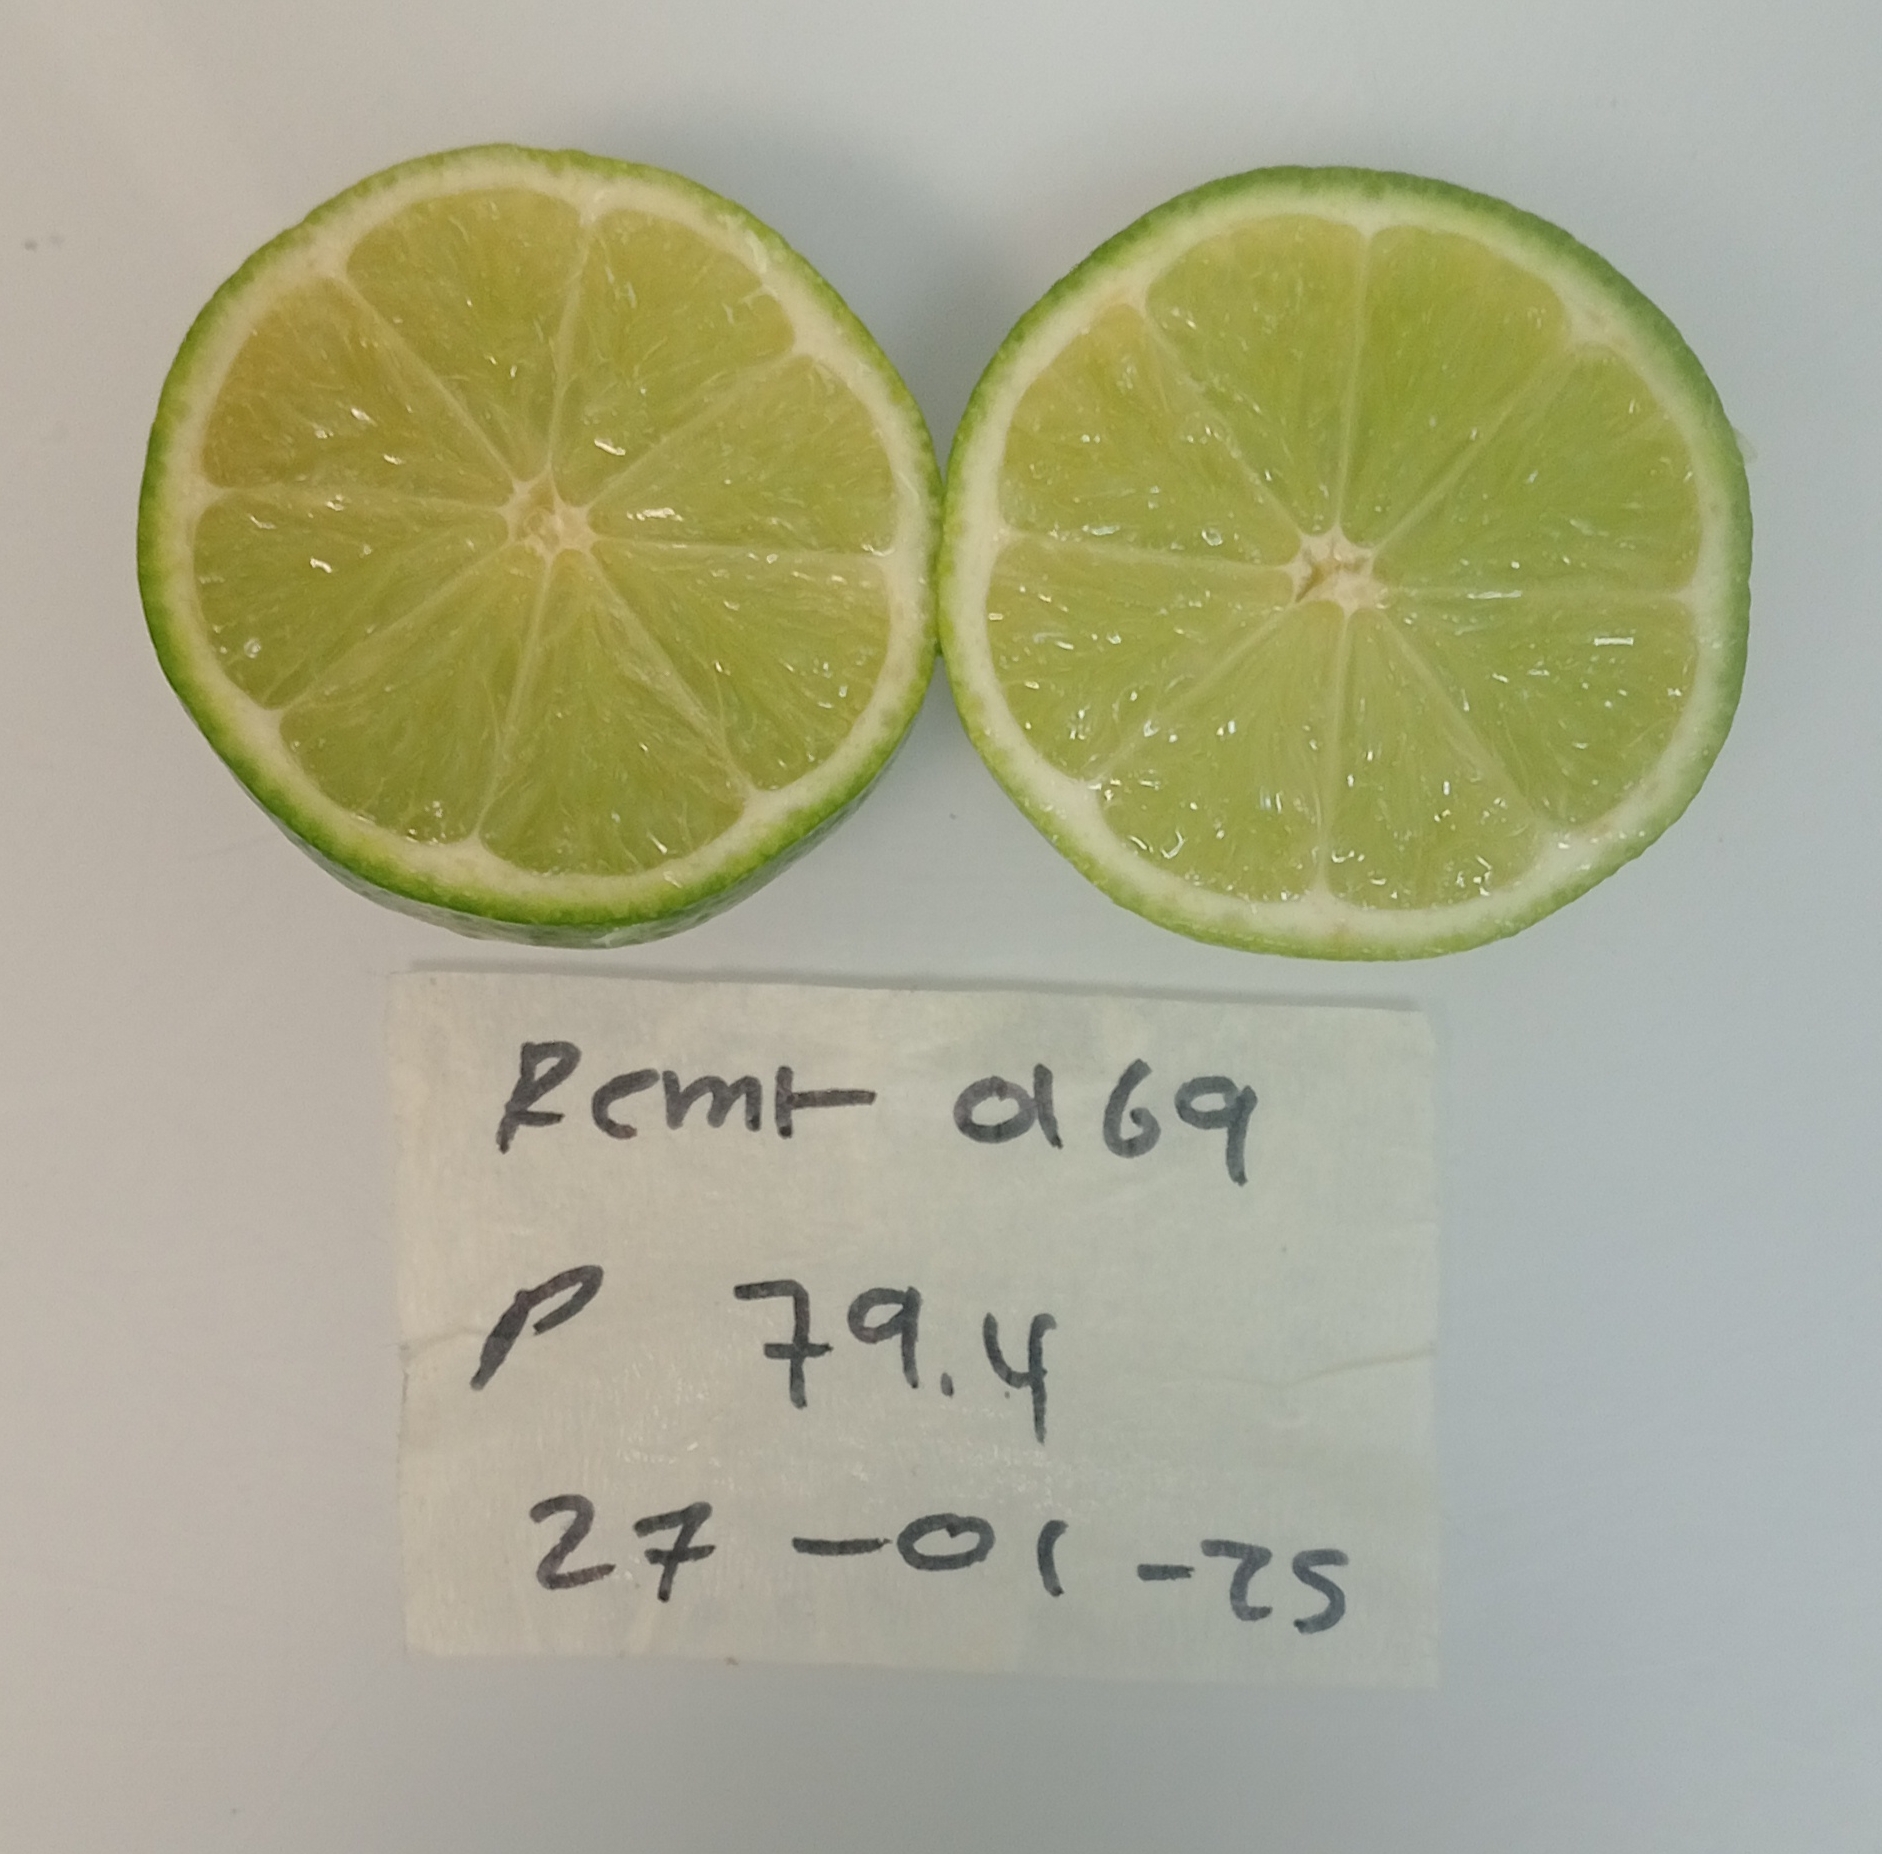 Remt 0169
P 79.4
27-01-25